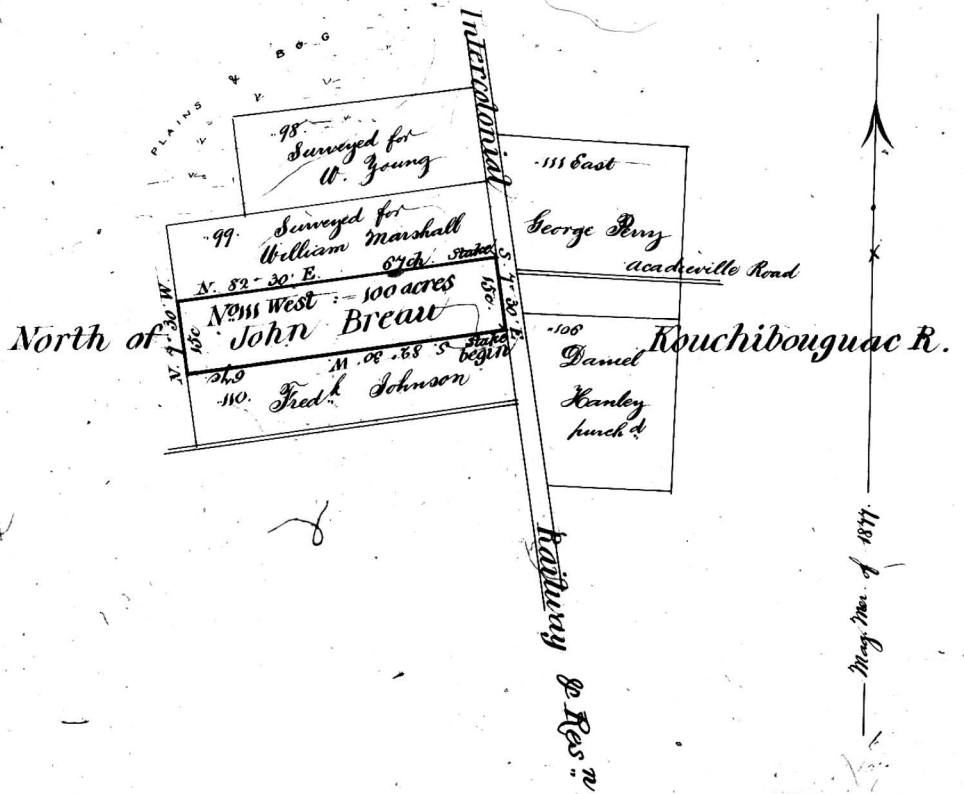 PLAINS & BOG
98
Surveyed for
W. Young
99. Surveyed for
William Marshall
N. 82-30' E. 67ch. Stake
No 111 West - 100 acres
John Breau
N. 7° 30' W.
15c
S. 7-30' E.
15c.
Stake
begin
S. 82° 30. W.
67c
110. Fredk Johnson
North of Kouchibouguac R.
Intercolonial Railway & Resn
111 East
George Perry
Acadieville Road
106
Daniel
Hanley
purchd
Mag. Mer. of 1877.